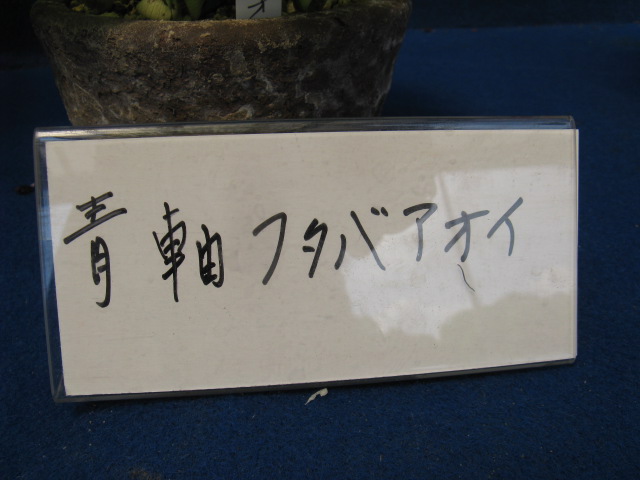 オ
青軸フタバアオイ